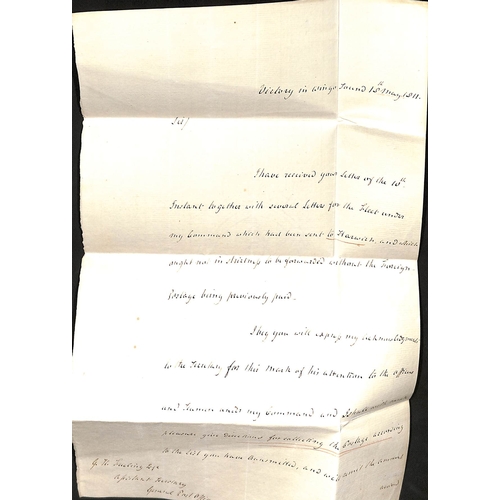 Victory in Wingo Sound 15th May 1811.
Sir/
I have received your Letter of the 10th
Instant together with several Letters for the Fleet under
my Command which had been sent to Harwich, and which
ought not in strictness to be forwarded without the Foreign
Postage being previously paid.
I beg you will express my acknowledgments
to the Secretary for this mark of his attention to the officers
and Seamen under my Command and I shall with much
pleasure give directions for collecting the Postage according
to the list you have transmitted, and will remit the amount
G. H. Freeling Esqr
Assistant Secretary
General Post Office